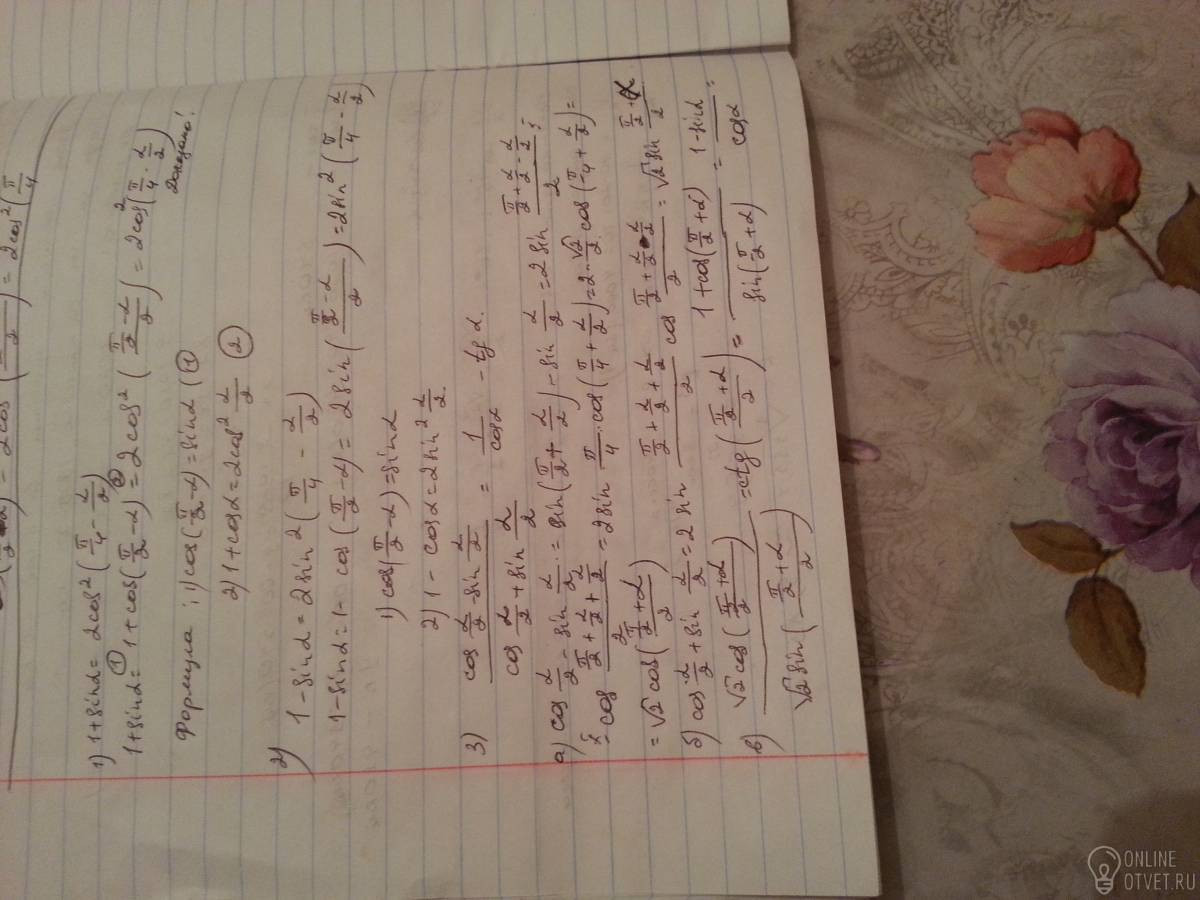 = 2cos² (π/4
1) 1+sinα = 2cos² (π/4 - α/2)
1+sinα = 1+cos(π/2 - α) = 2cos² ((π/2 - α)/2) = 2cos² (π/4 - α/2)
① ②
Доказано!
Формула: 1) cos(π/2 - α) = sinα ①
2) 1+cosα = 2cos² α/2 ②
2) 1-sinα = 2sin² (π/4 - α/2)
1-sinα = 1-cos(π/2 - α) = 2sin ((π/2 - α)/2) = 2sin² (π/4 - α/2)
1) cos(π/2 - α) = sinα
2) 1-cosα = 2sin² α/2.
3) (cos α/2 - sin α/2)/(cos α/2 + sin α/2) = 1/cosα - tgα.
а) cos α/2 - sin α/2 = sin(π/2 + α/2) - sin α/2 = 2 sin (π/2 + α/2 - α/2)/2 ·
cos (π/2 + α/2 + α/2)/2 = 2sin π/4 · cos(π/4 + α/2) = 2·√2/2 cos(π/4 + α/2) =
= √2 cos((π/2 + α)/2)
б) cos α/2 + sin α/2 = 2 sin (π/2 + α/2 + α/2)/2 cos (π/2 + α/2 - α/2)/2 = √2 sin (π/2 + α)/2
в) √2 cos((π/2 + α)/2)/√2 sin((π/2 + α)/2) = ctg((π/2 + α)/2) = (1+cos(π/2 + α))/sin(π/2 + α) = (1-sinα)/cosα =
ONLINE
OTVET.RU